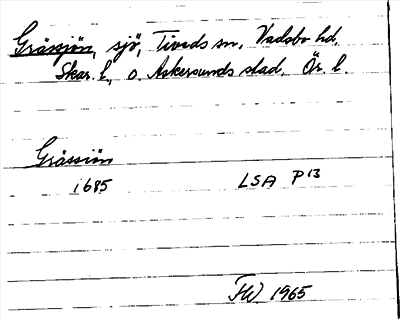 Gråssjön, sjö, Tiveds sn, Vadsbo hd,
Skar. l., o. Askersunds stad, Ör. l.
Gråssiön
1685 LSA P13
FW 1965